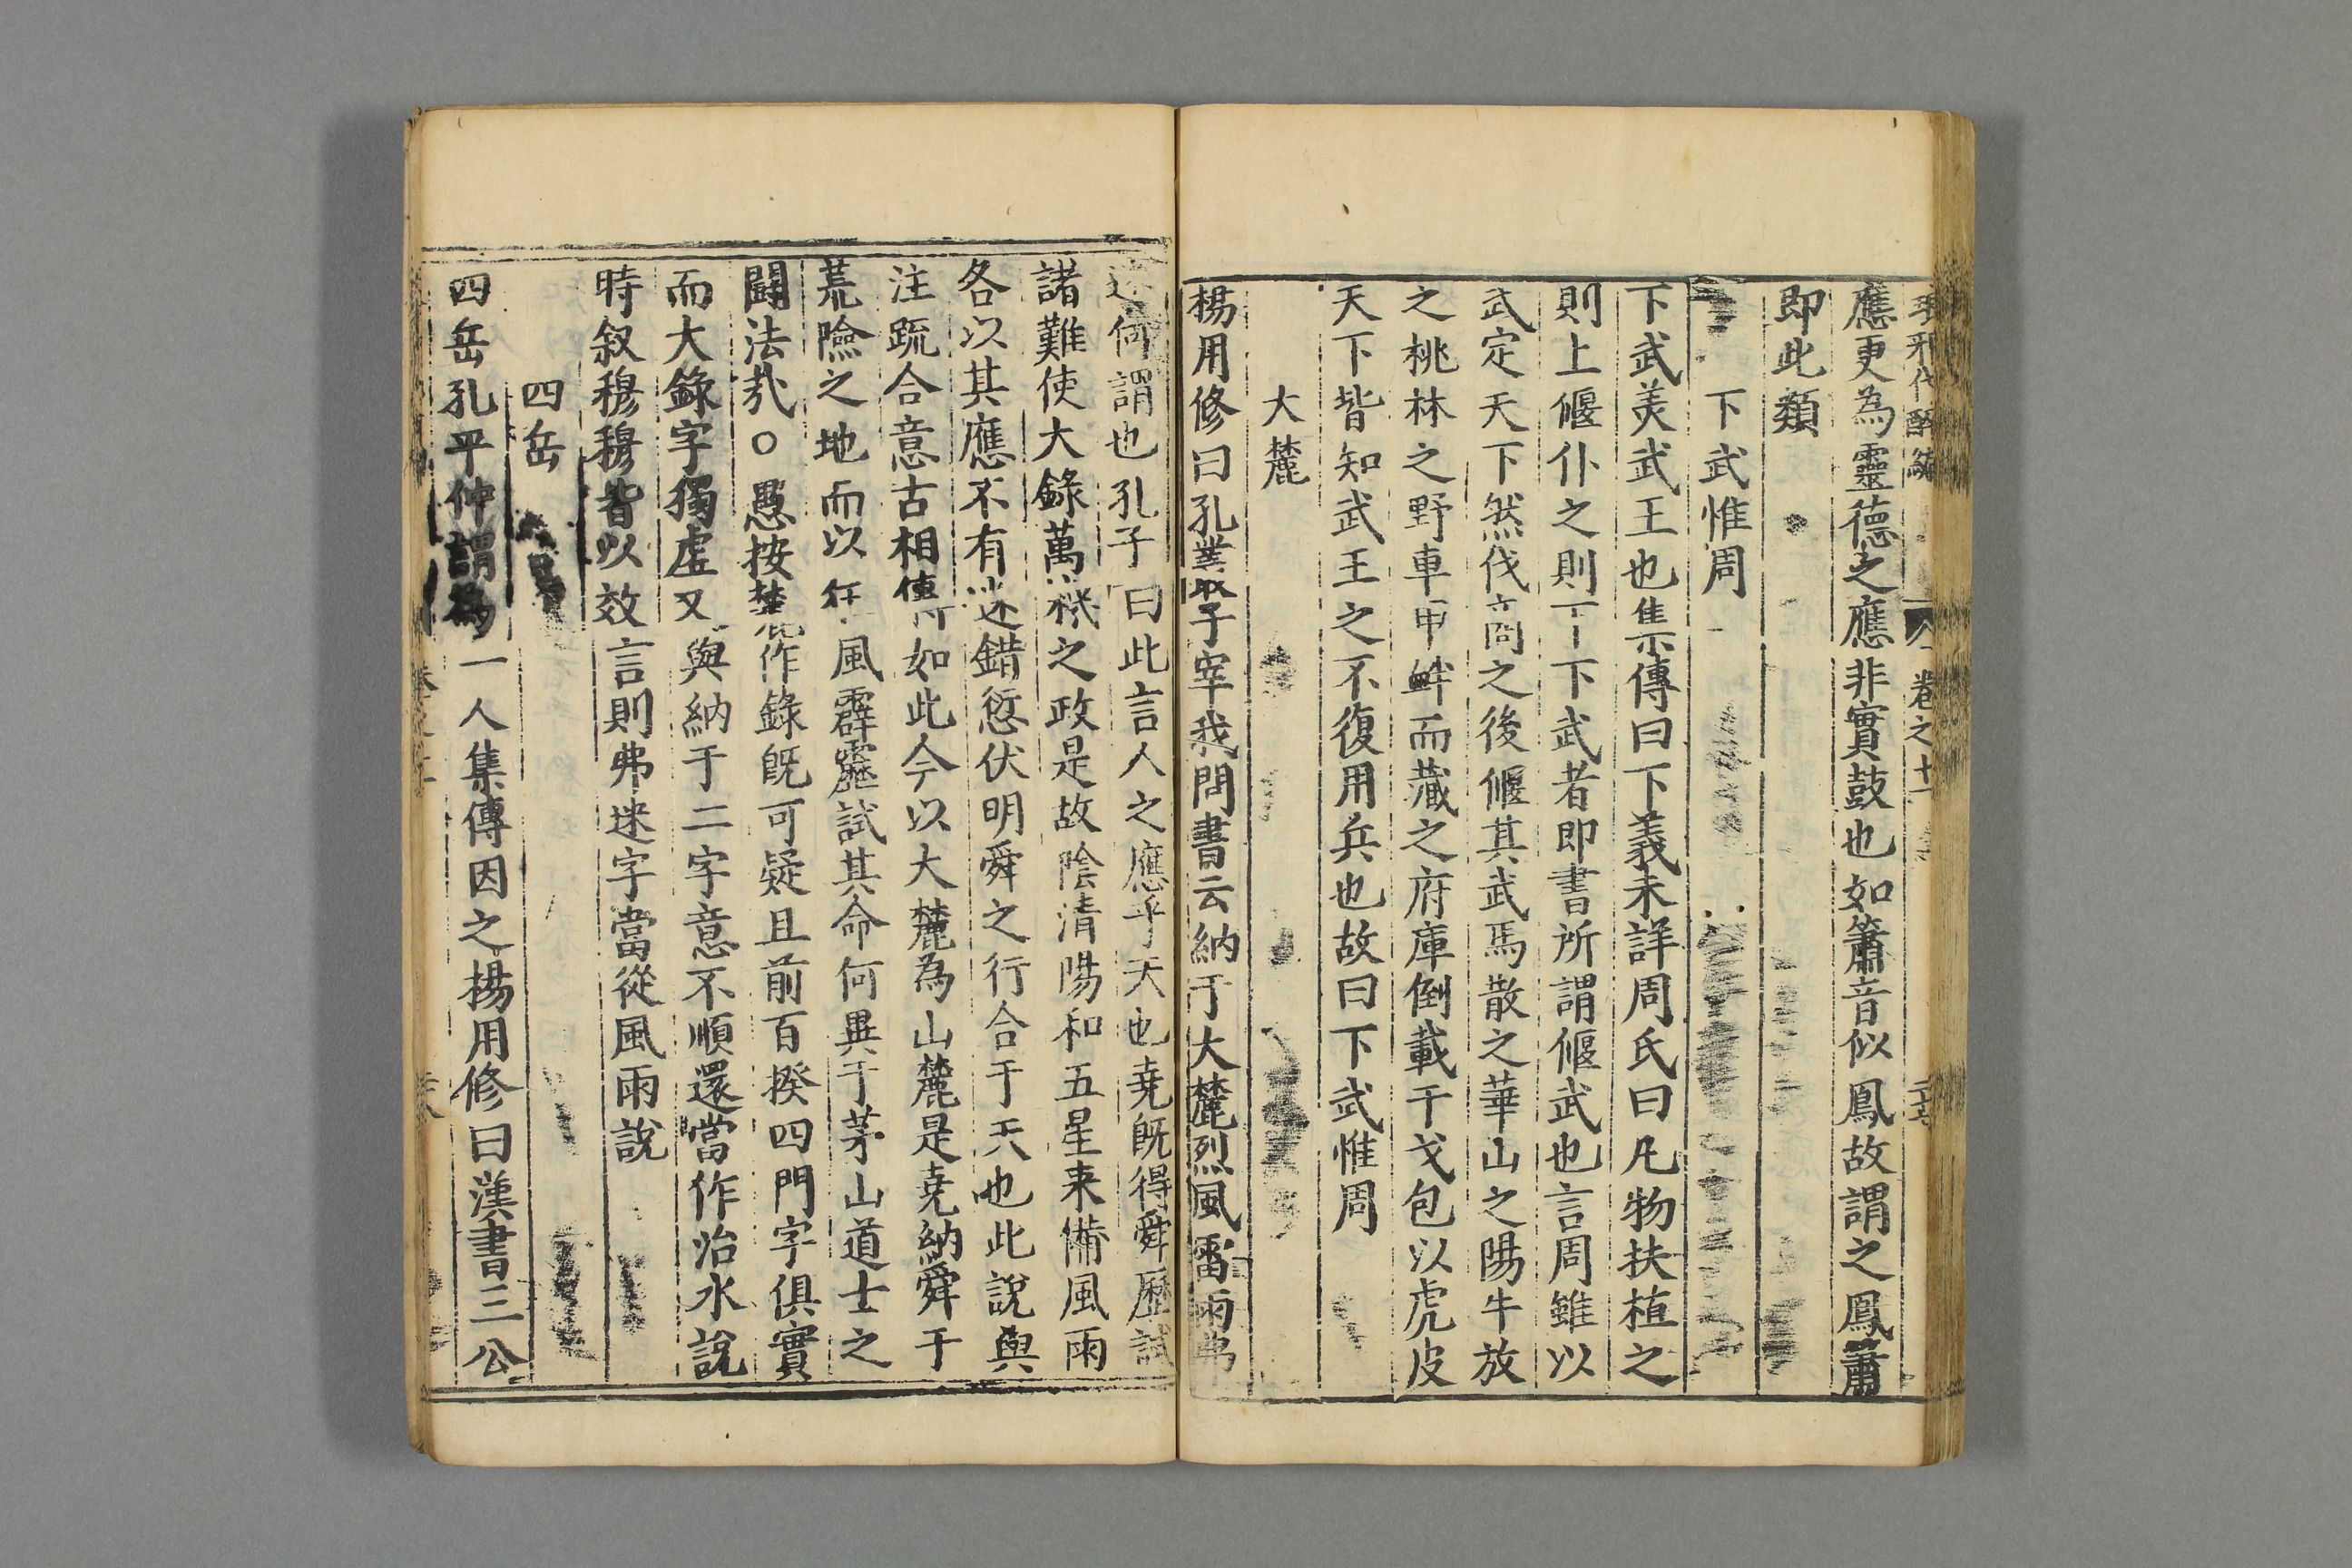 應更為靈德之應非實鼓也如簫音似鳳故謂之鳳簫
即此類
下武惟周
下武美武王也集傳曰下義未詳周氏曰凡物扶植之
則上偃仆之則下下武者即書所謂偃武也言周雖以
武定天下然伐商之後偃其武馬散之華山之陽牛放
之桃林之野車甲衅而藏之府庫倒載干戈包以虎皮
天下皆知武王之不復用兵也故曰下武惟周
大麓
楊用修曰孔叢子宰我問書云納于大麓烈風雷雨弗
迷何謂也孔子曰此言人之應乎天也堯既得舜歷試
諸難使大錄萬機之政是故陰清陽和五星來備風雨
各以其應不有迷錯愆伏明舜之行合于天也此說與
注疏合意古相傳如此今以大麓為山麓是堯納舜于
荒險之地而以狂風霹靂試其命何異于茅山道士之
鬪法哉○愚按麓作錄既可疑且前百揆四門字俱實
而大錄字獨虛又與納于二字意不順還當作治水說
時叙穆穆皆以效言則弗迷字當從風雨說
四岳
四岳孔平仲謂為一人集傳因之楊用修曰漢書三公
瑯邪代醉編
卷之十一